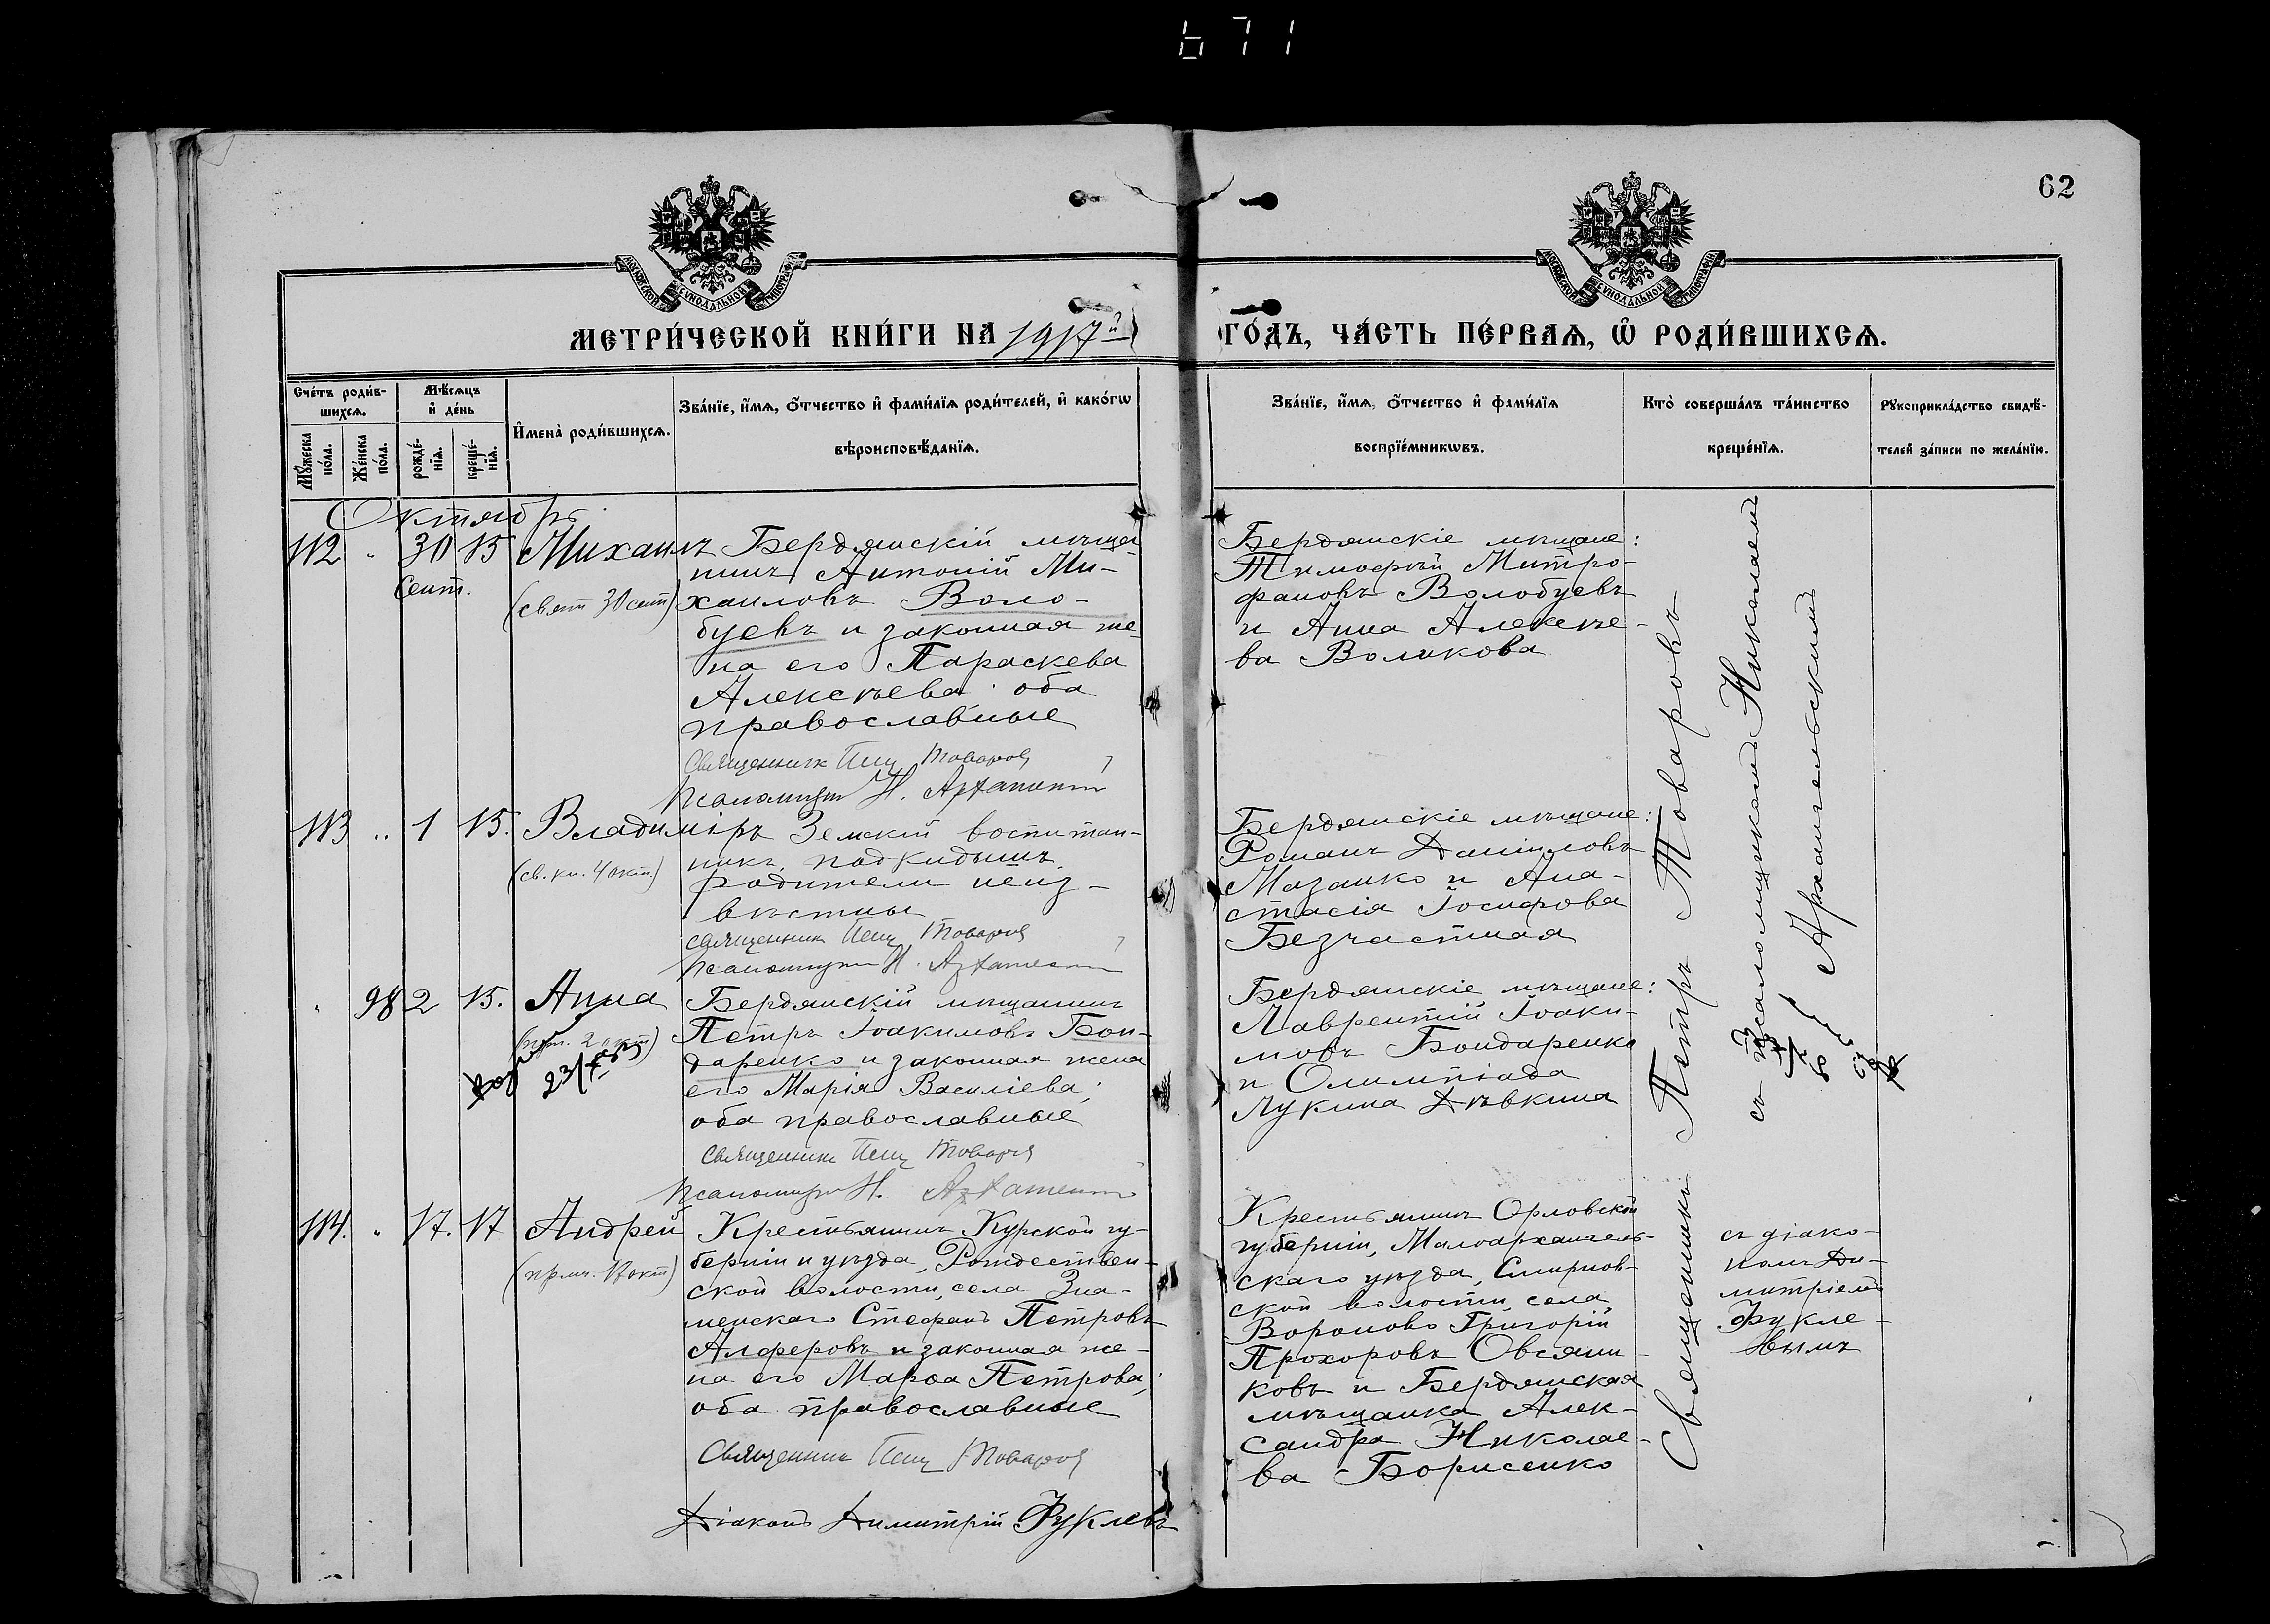 671
62
МОСКОВСКОЙ СѴНОДАЛЬНОЙ ТИПОГРАФІИ
МОСКОВСКОЙ СѴНОДАЛЬНОЙ ТИПОГРАФІИ
МЕТРИ́ЧЕСКОЙ КНИ́ГИ НА 1917й ГО́ДЪ, ЧА́СТЬ ПЕ́РВАѦ, Ѡ҆ РОДИ́ВШИХСѦ.
Сче́тъ роди́в-
шихсѧ.
Мѹ́жеска
по́ла.
Же́нска
по́ла.
Мѣ́сѧцъ
и҆ де́нь
рожде́-
нїѧ.
креще́-
нїѧ.
И҆мена̀ роди́вшихсѧ.
Зва́нїе, и҆́мѧ, ѻ҆́тчество и҆ фами́лїѧ роди́телей, и҆ како́гѡ
вѣроисповѣ́данїѧ.
Зва́нїе, и҆́мѧ, ѻ҆́тчество и҆ фами́лїѧ
воспрїе́мникѡвъ.
Кто̀ соверша́лъ та́инство
креще́нїѧ.
Рѹкоприкла́дство свидѣ́-
телей за́писи по жела́нїю.
Октябрь.
112 " 30 15 Михаилъ
Сент.
(свят 30 сент)
Бердянскій мѣща-
нинъ Антоній Ми-
хаиловъ Воло-
буевъ и законная же-
на его Параскева
Алексѣева: оба
православные
Священникъ Петръ Товаровъ
Псаломщикъ Н.
Бердянскіе мѣщане:
Тимофѣй Митро-
фановъ Волобуевъ
и Анна Алексѣе-
ва Воликова
113 " 1 15. Владиміръ
(св. кн. 4 окт.)
Земскій воспитан-
никъ, подкидышъ
родители неиз-
вѣстны
Священникъ Петръ Товаровъ
Псаломщикъ Н.
Бердянскіе мѣщане:
Романъ Даніиловъ
Мазанко и Ана-
стасія Іосифова
Безчастная
" 98 2 15. Анна
2 окт)
23/
Бердянскій мѣщанинъ
Петръ Іоакимовъ Бон-
даренко и законная жена
его Марія Василіева;
оба православные
Священникъ Петръ Товаровъ
Псаломщикъ Н.
Бердянскіе мѣщане:
Лаврентій Іоаки-
мовъ Бондаренко
и Олимпіада
Лукина Дѣвкина
114. " 17. 17 Андрей
(прмч. 17 окт)
Крестьянинъ Курской гу-
берніи и уѣзда, Рождествен-
ской волости, села Зна-
менскаго Стефанъ Петровъ
Алферовъ и законная же-
на его Марѳа Петрова;
оба православные
Священникъ Петръ Товаровъ
Діаконъ Димитрій Фуклевъ
Крестьянинъ Орловской
губерніи, Малоархангель-
скаго уѣзда, Смирнов-
ской волости, села
Вороново Григорій
Прохоровъ Овсянни-
ковъ и Бердянская
мѣщанка Алек-
сандра Николае-
ва Борисенко
Священникъ Петръ Товаровъ
съ псаломщикомъ Николаемъ
Архангельскимъ
съ діако-
номъ Ди-
митріемъ
Фукле-
вымъ